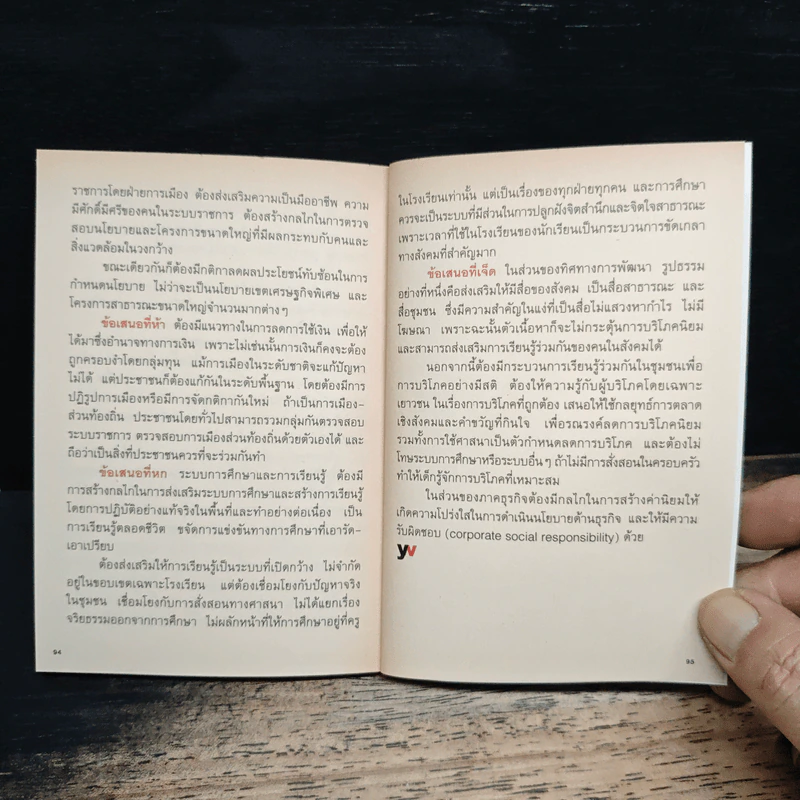 ราชการโดยฝ่ายการเมือง ต้องส่งเสริมความเป็นมืออาชีพ ความ
มีศักดิ์ศรีของคนในระบบราชการ ต้องสร้างกลไกในการตรวจ
สอบนโยบายและโครงการขนาดใหญ่ที่มีผลกระทบกับคนและ
สิ่งแวดล้อมในวงกว้าง
ขณะเดียวกันก็ต้องมีกติกาลดผลประโยชน์ทับซ้อนในการ
กำหนดนโยบาย ไม่ว่าจะเป็นนโยบายเขตเศรษฐกิจพิเศษ และ
โครงการสาธารณะขนาดใหญ่จำนวนมากต่างๆ
ข้อเสนอที่ห้า ต้องมีแนวทางในการลดการใช้เงิน เพื่อให้
ได้มาซึ่งอำนาจทางการเงิน เพราะไม่เช่นนั้นการเงินก็คงจะต้อง
ถูกครอบงำโดยกลุ่มทุน แม้การเมืองในระดับชาติจะแก้ปัญหา
ไม่ได้ แต่ประชาชนก็ต้องแก้กันในระดับพื้นฐาน โดยต้องมีการ
ปฏิรูปการเมืองหรือมีการจัดกติกากันใหม่ ถ้าเป็นการเมือง-
ส่วนท้องถิ่น ประชาชนโดยทั่วไปสามารถรวมกลุ่มกันตรวจสอบ
ระบบราชการ ตรวจสอบการเมืองส่วนท้องถิ่นด้วยตัวเองได้ และ
ถือว่าเป็นสิ่งที่ประชาชนควรที่จะร่วมกันทำ
ข้อเสนอที่หก ระบบการศึกษาและการเรียนรู้ ต้องมี
การสร้างกลไกในการส่งเสริมระบบการศึกษาและสร้างการเรียนรู้
โดยการปฏิบัติอย่างแท้จริงในพื้นที่และทำอย่างต่อเนื่อง เป็น
การเรียนรู้ตลอดชีวิต ขจัดการแข่งขันทางการศึกษาที่เอารัด-
เอาเปรียบ
ต้องส่งเสริมให้การเรียนรู้เป็นระบบที่เปิดกว้าง ไม่จำกัด
อยู่ในขอบเขตเฉพาะโรงเรียน แต่ต้องเชื่อมโยงกับปัญหาจริง
ในชุมชน เชื่อมโยงกับการสั่งสอนทางศาสนา ไม่ได้แยกเรื่อง
จริยธรรมออกจากการศึกษา ไม่ผลักหน้าที่ให้การศึกษาอยู่ที่ครู
94
ในโรงเรียนเท่านั้น แต่เป็นเรื่องของทุกฝ่ายทุกคน และการศึกษา
ควรจะเป็นระบบที่มีส่วนในการปลูกฝังจิตสำนึกและจิตใจสาธารณะ
เพราะเวลาที่ใช้ในโรงเรียนของนักเรียนเป็นกระบวนการขัดเกลา
ทางสังคมที่สำคัญมาก
ข้อเสนอที่เจ็ด ในส่วนของทิศทางการพัฒนา รูปธรรม
อย่างที่หนึ่งคือส่งเสริมให้มีสื่อของสังคม เป็นสื่อสาธารณะ และ
สื่อชุมชน ซึ่งมีความสำคัญในแง่ที่เป็นสื่อไม่แสวงหากำไร ไม่มี
โฆษณา เพราะฉะนั้นตัวเนื้อหาก็จะไม่กระตุ้นการบริโภคนิยม
และสามารถส่งเสริมการเรียนรู้ร่วมกันของคนในสังคมได้
นอกจากนี้ต้องมีกระบวนการเรียนรู้ร่วมกันในชุมชนเพื่อ
การบริโภคอย่างมีสติ ต้องให้ความรู้กับผู้บริโภคโดยเฉพาะ
เยาวชน ในเรื่องการบริโภคที่ถูกต้อง เสนอให้ใช้กลยุทธ์การตลาด
เชิงสังคมและคำขวัญที่กินใจ เพื่อรณรงค์ลดการบริโภคนิยม
รวมทั้งการใช้ศาสนาเป็นตัวกำหนดลดการบริโภค และต้องไม่
โทษระบบการศึกษาหรือระบบอื่นๆ ถ้าไม่มีการสั่งสอนในครอบครัว
ทำให้เด็กรู้จักการบริโภคที่เหมาะสม
ในส่วนของภาคธุรกิจต้องมีกลไกในการสร้างค่านิยมให้
เกิดความโปร่งใสในการดำเนินนโยบายด้านธุรกิจ และให้มีความ
รับผิดชอบ (corporate social responsibility) ด้วย
yv